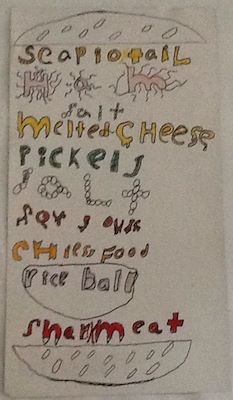 SCAPIOTAIL
salt
melted CHeese
PICKELS
SALT
FOOD
rice ball
shark meat